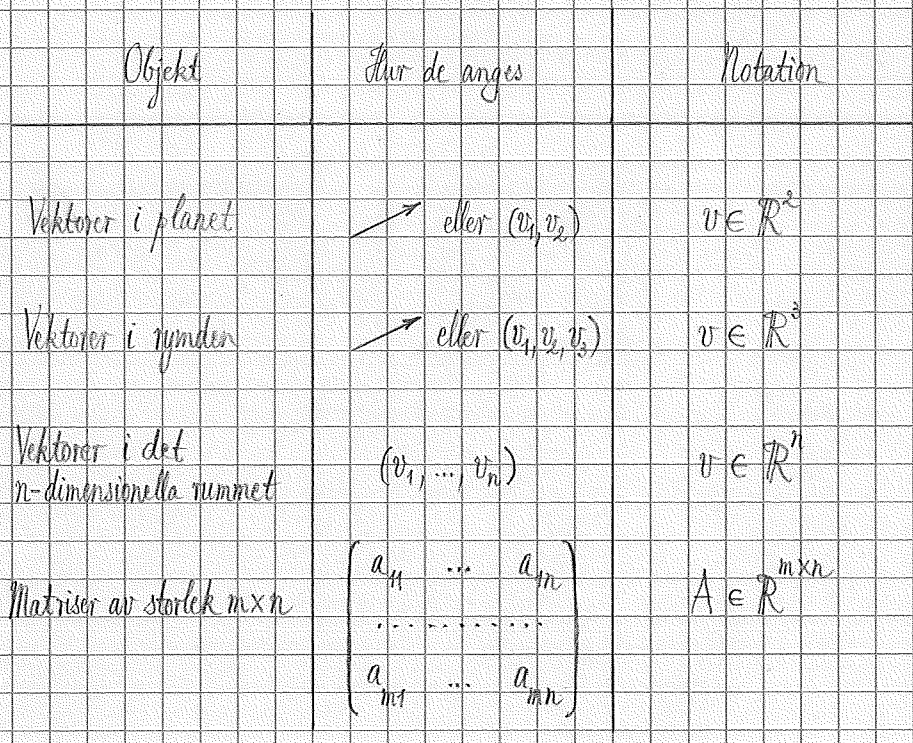 Objekt Hur de anges Notation
Vektorer i planet eller (v₁, v₂) v ∈ ℝ²
Vektorer i rymden eller (v₁, v₂, v₃) v ∈ ℝ³
Vektorer i det
n-dimensionella rummet (v₁, ..., vₙ) v ∈ ℝⁿ
Matriser av storlek m×n
a₁₁ ... a₁ₙ
...........
aₘ₁ ... aₘₙ
A ∈ ℝᵐˣⁿ